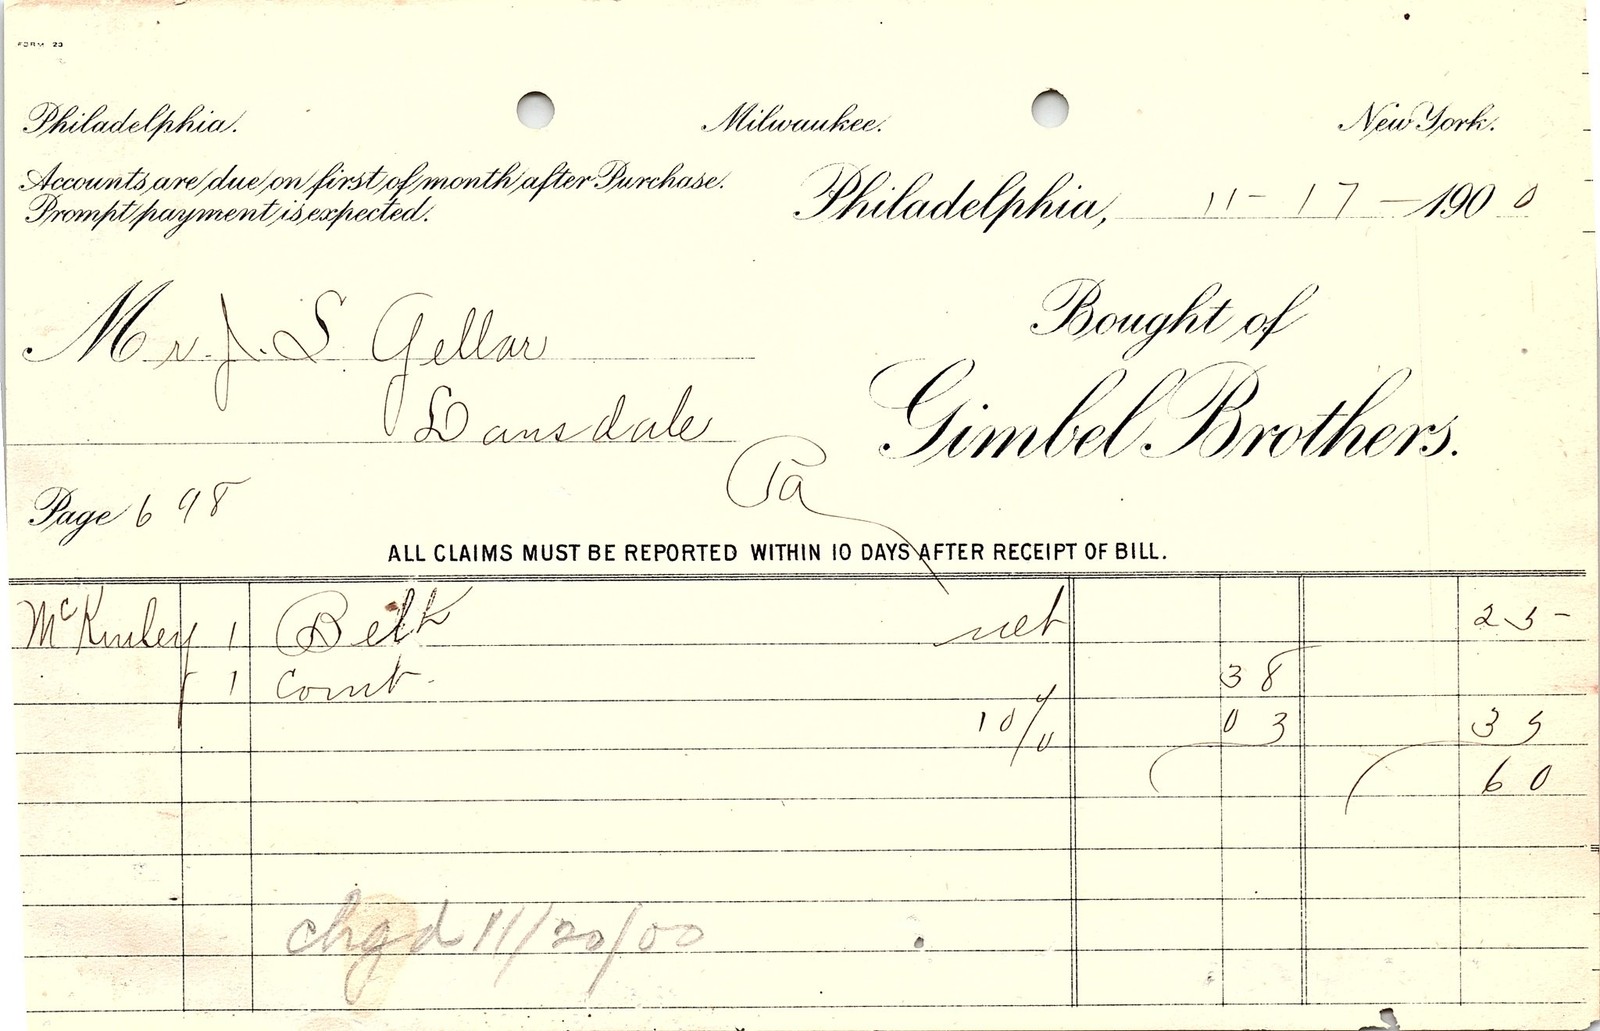 FORM 23
Philadelphia. Milwaukee. New York.
Accounts are due on first of month after Purchase.
Prompt payment is expected.
Philadelphia, 11-17-1900
Mr. J. S. Gellar
Lansdale
Pa
Bought of
Gimbel Brothers.
Page 698
ALL CLAIMS MUST BE REPORTED WITHIN 10 DAYS AFTER RECEIPT OF BILL.
McKinley 1 Belt net 25-
1 Comb 38
10% 03 35
60
chgd 11/20/00